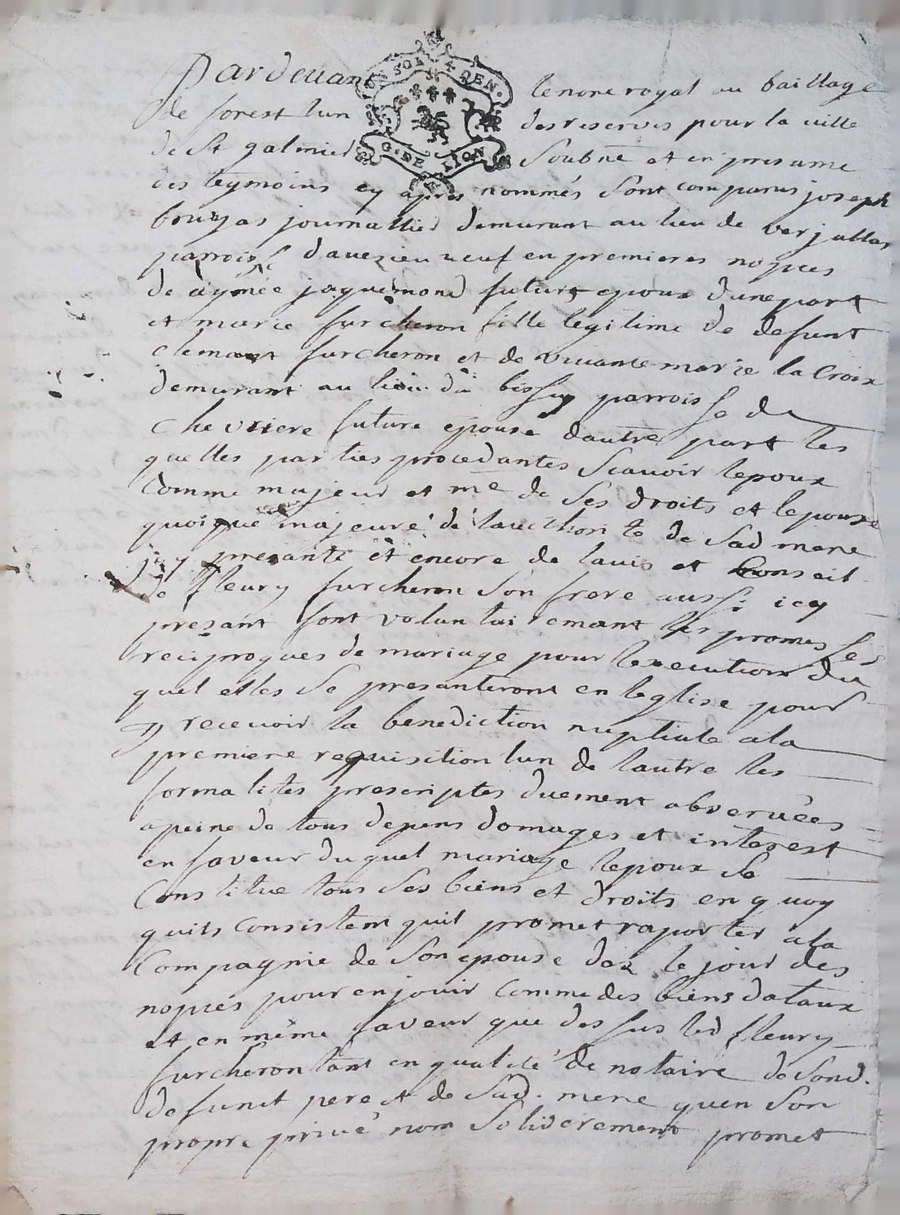 Pardevant le nore royal au bailliage
UN SOL 4 DEN.
G. DE LION
de forest lun des reservés pour la ville
de St galmier Soubne et en presance
des teymoins cy apres nommés Sont comparus joseph
journallier demurant au lieu de verjallas
parroisse davezieu veuf en premieres nopces
de aymée jaquemond futur epoux dune part
et marie furcheron fille legitime de defunt
Clemant furcheron et de vivante marie la Croix
demurant au lieu du parroisse de
Chevriere future epouse dautre part les
quelles parties procedantes Scavoir lepoux
Comme majeur et me de Ses droits et lepouse
quoique majeure de lauthorité de Sad mere
icy presante et encore de lavis et Conseil
de fleury furcheron Son frere aussi icy
presant font volontairemant les promesses
reciproques de mariage pour lexecution du
quel elles Se presanteront en leglise pour
y recevoir la benediction nuptiale a la
premiere requisition lun de lautre les
formalites prescriptes duement observées
a peine de tous depens domages et interest
en faveur du quel mariage lepoux Se
Constitue tous Ses biens et droits en quoy
quils Consistent quil promet raporter a la
Compagnie de Son epouse dez le jour des
nopces pour en jouir Comme des biens dotaux
et en même faveur que dessus led fleury
furcheron tant en qualité de notaire de Sond.
defunct pere et de Sad. mere quen Son
propre privé nom Soliderement promet